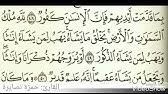 قدمت أيديهم فإن الإنسن كفور ٤٨ لله ملك
السموت والأرض يخلق ما يشاء يهب لمن يشاء إنثا
ويهب لمن يشاء الذكور ٤٩ أو يزوجهم ذكرانا وإنثا
ويجعل من يشاء عقيما إنه عليم قدير ٥٠ وما كان
القارئ: حمزة نصايرة